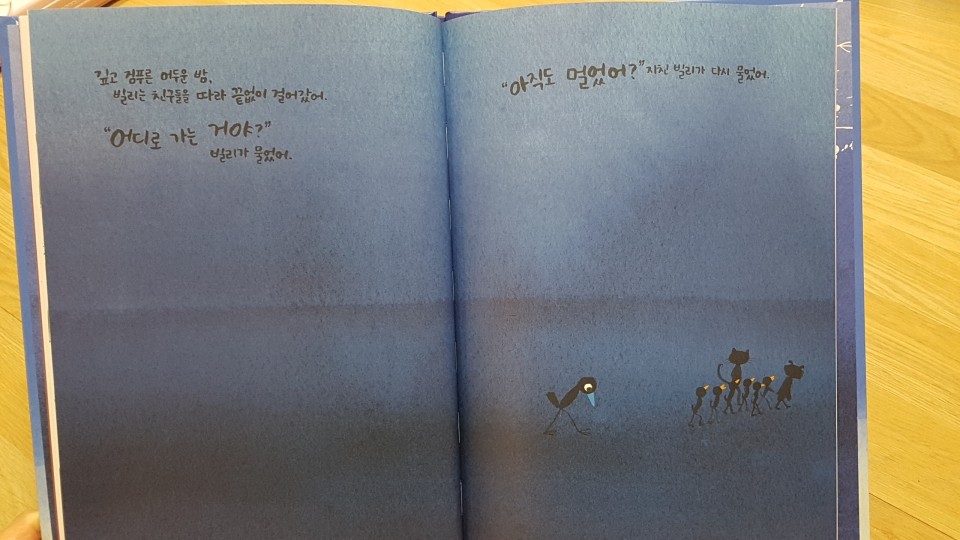 깊고 검푸른 어두운 밤,
빌리는 친구들을 따라 끝없이 걸어갔어.
“어디로 가는 거야?”
빌리가 물었어.
“아직도 멀었어?” 지친 빌리가 다시 물었어.